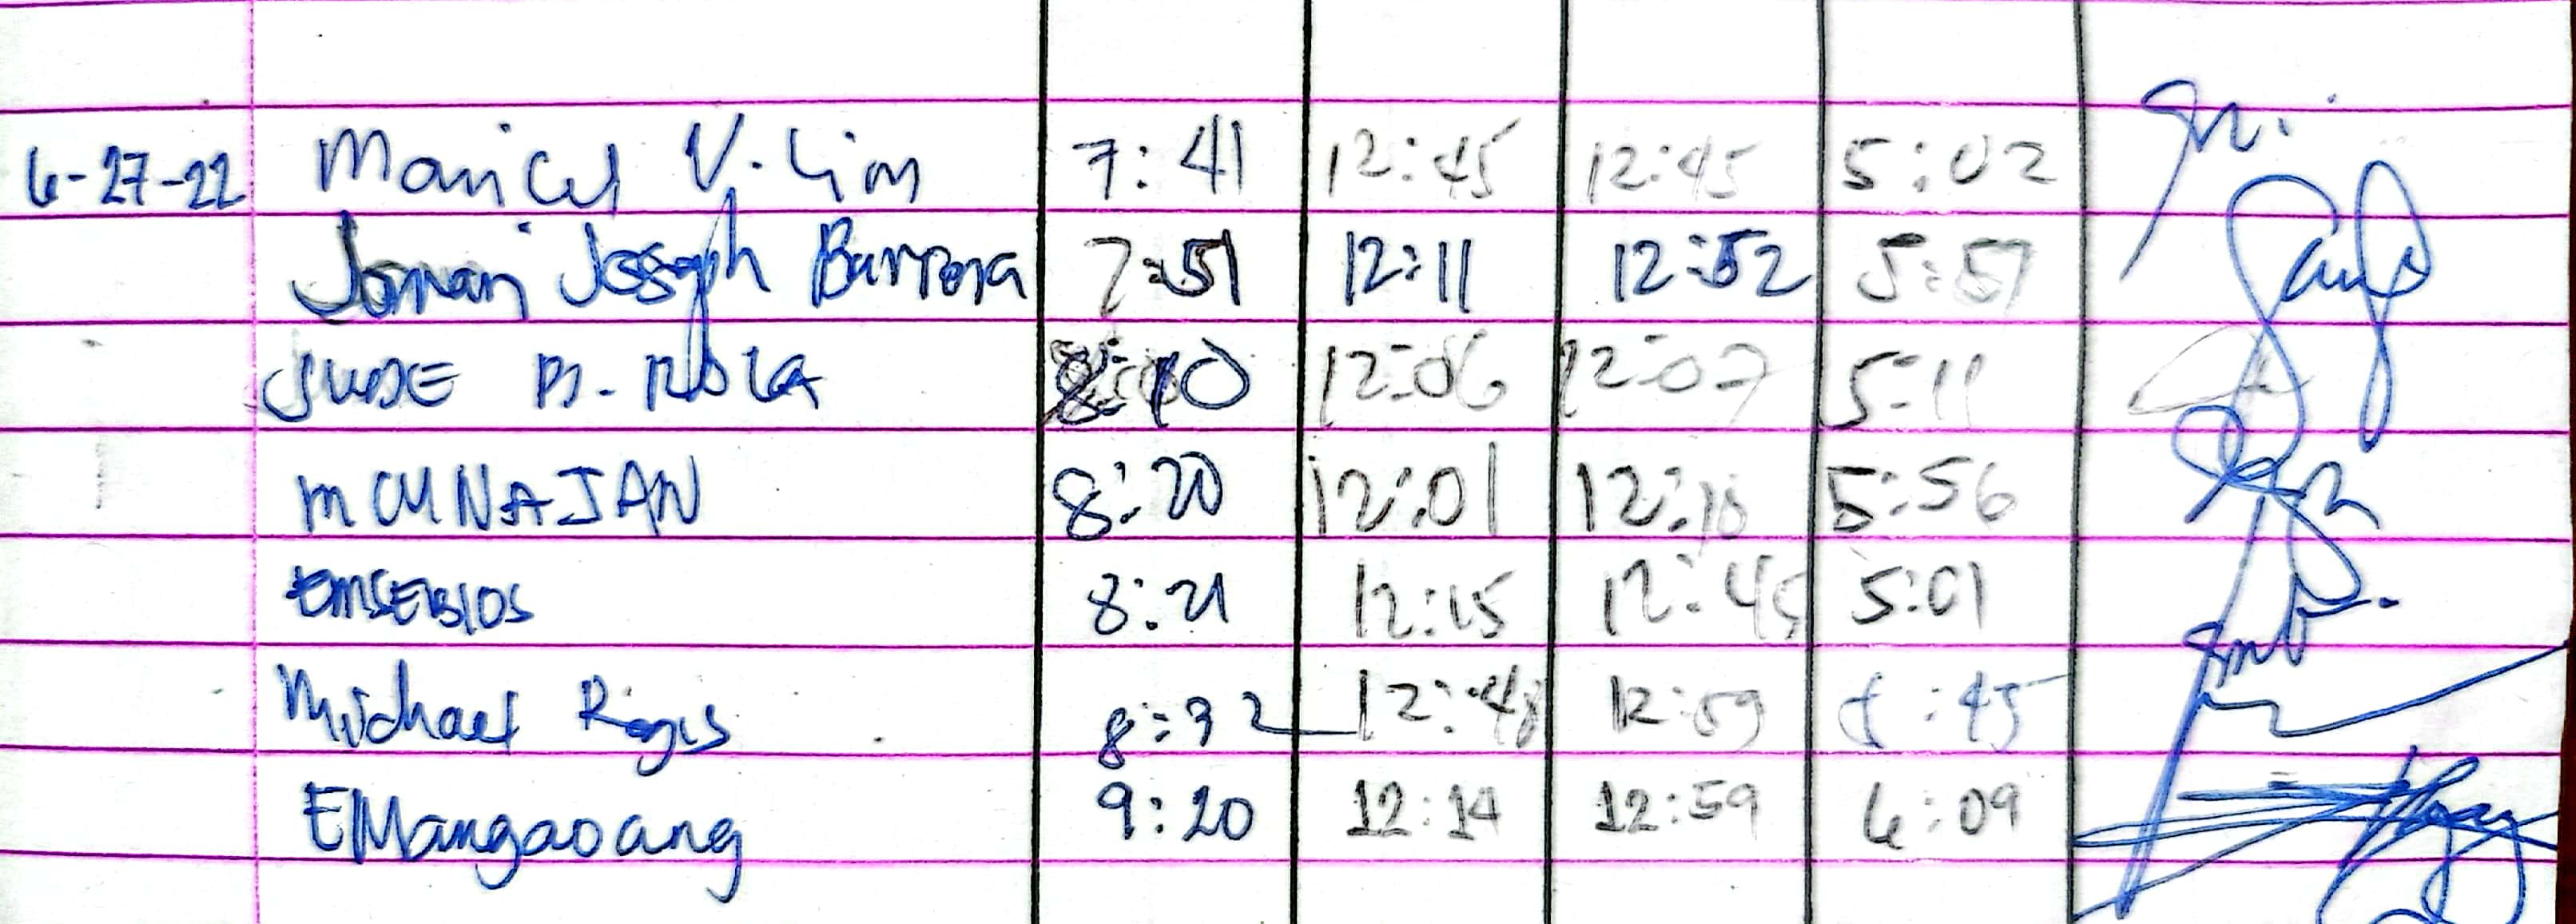 6-27-22 Maricel V. Lim 7:41 12:45 12:45 5:02
Joseph 7:51 12:11 12:52 5:57
JUDE B. ROLA 8:10 12:06 12:07 5:11
MCUNAJAN 8:20 12:01 12:10 5:56
EMSEBIOS 8:21 12:15 12:45 5:01
Michael Regis 8:32 12:48 12:59 :45
EMangaoang 9:20 12:14 12:59 6:09